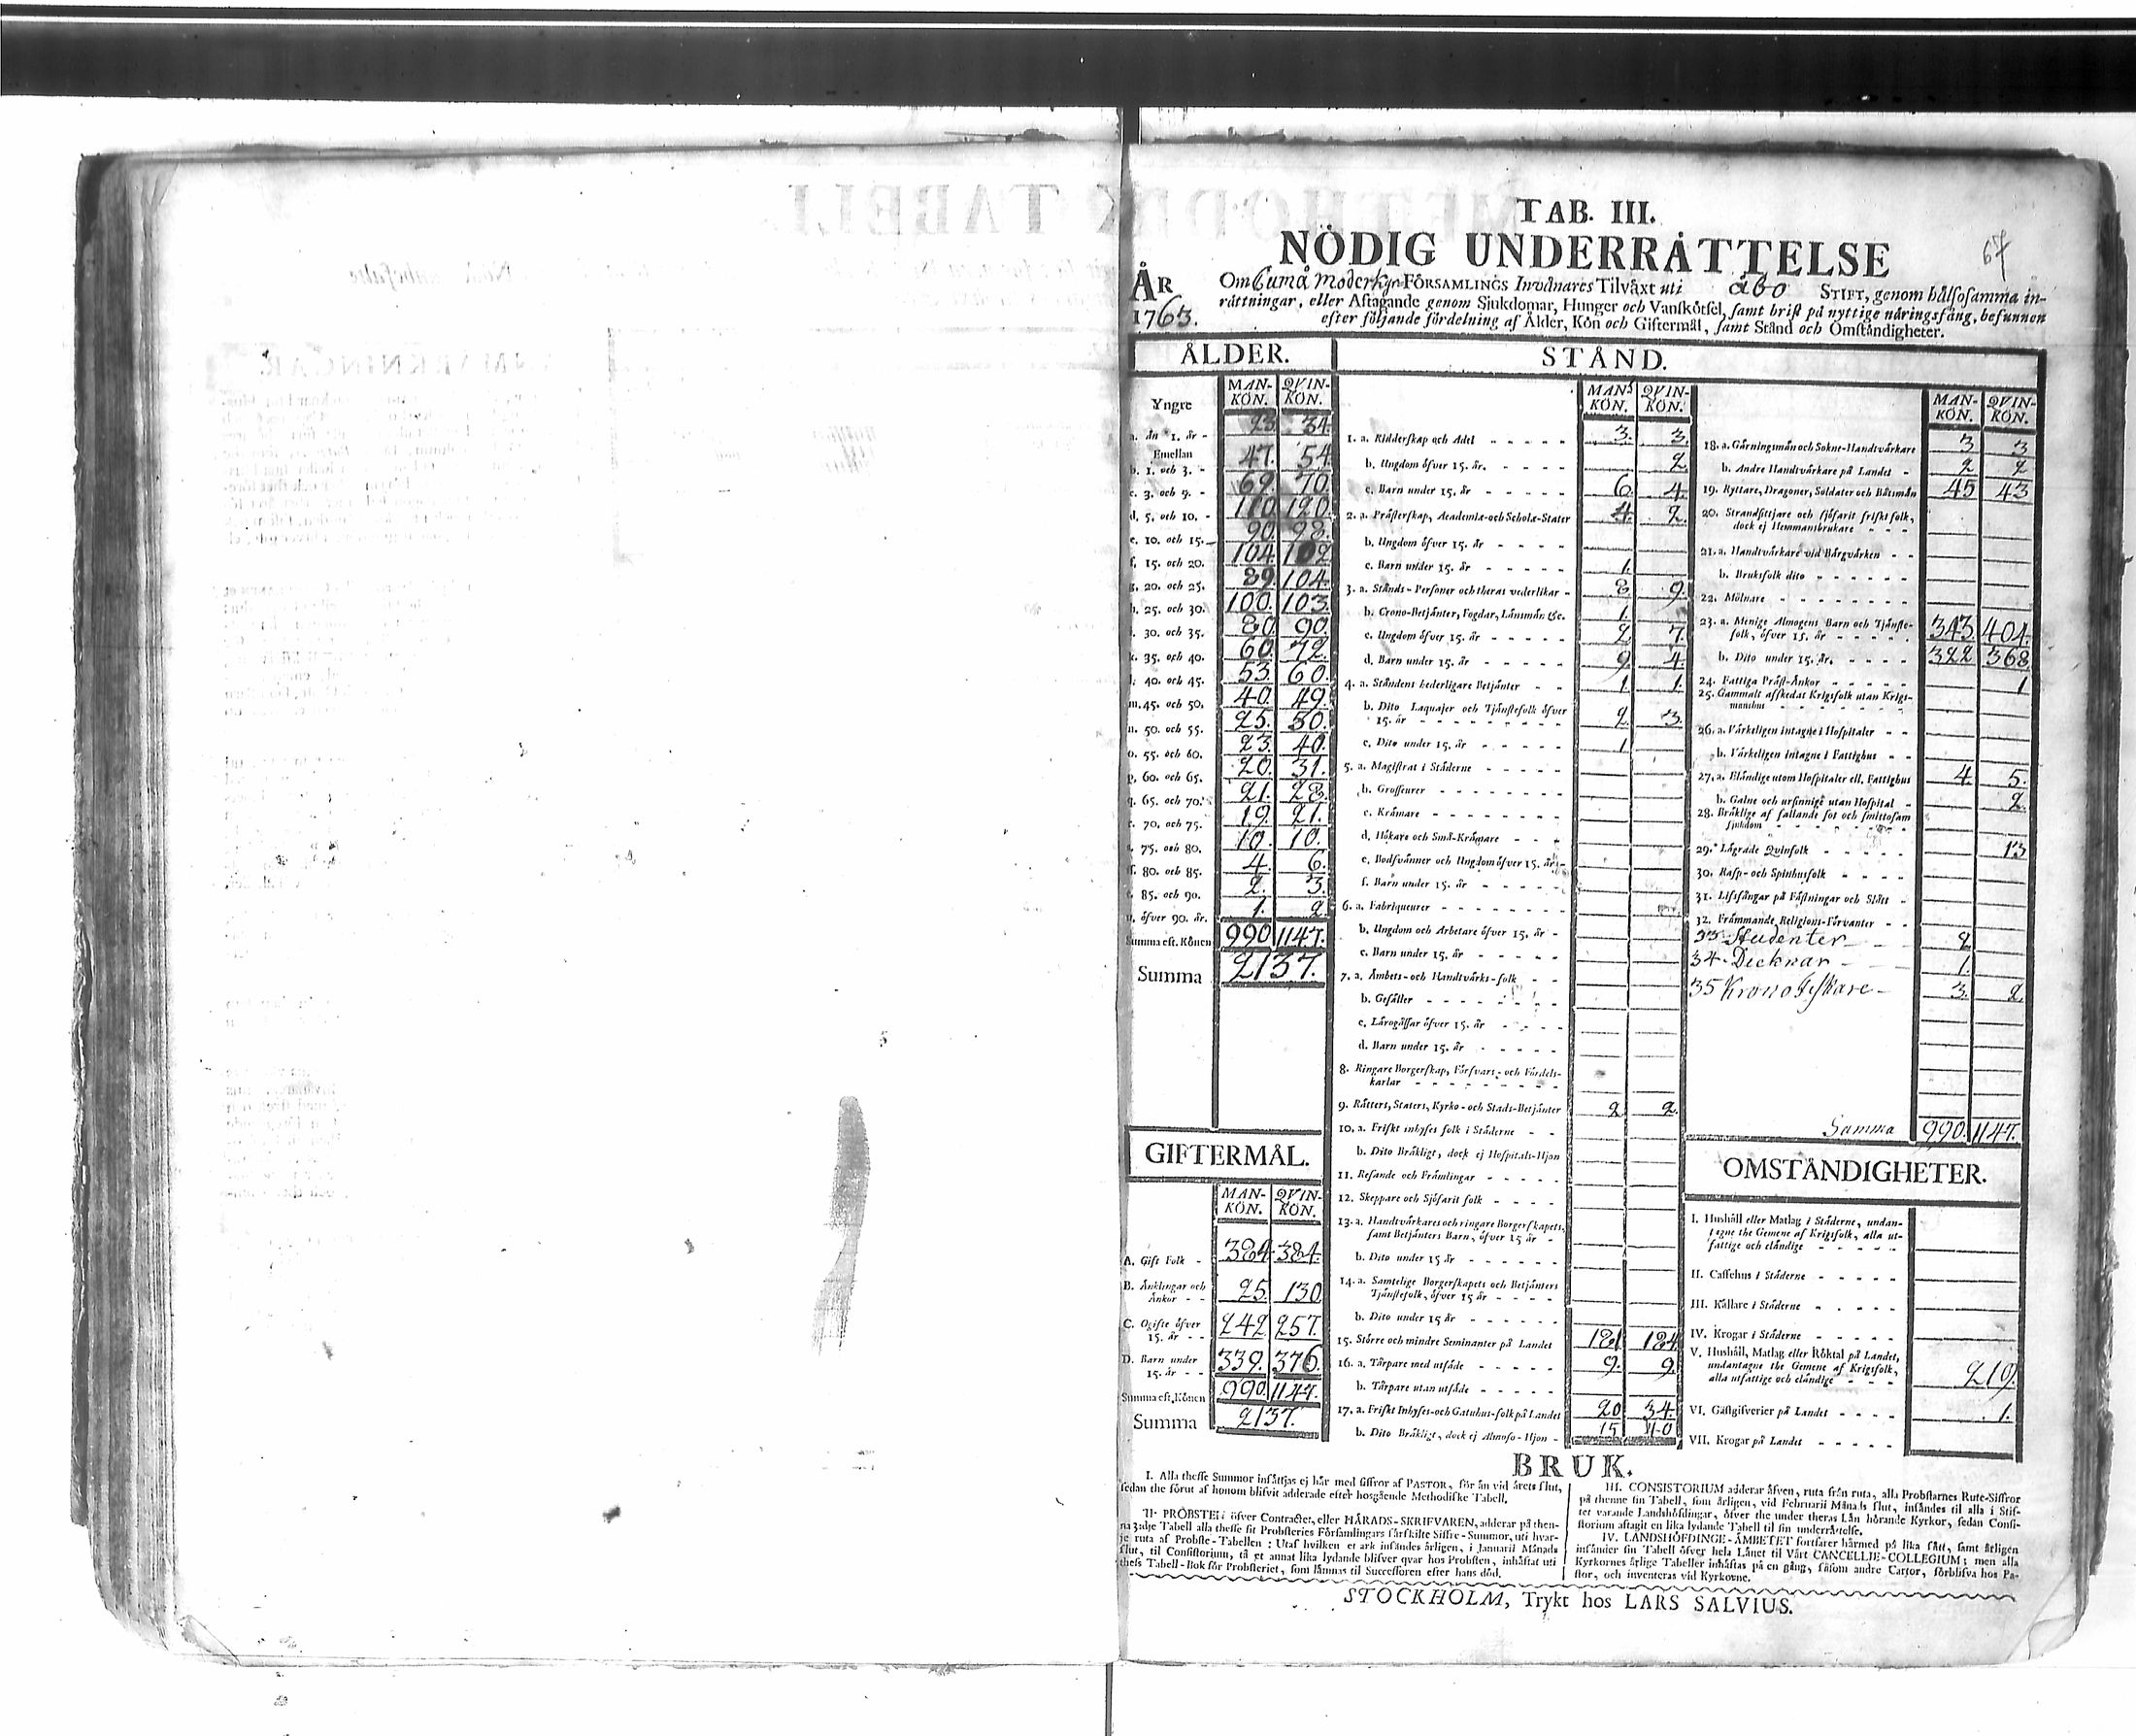 TAB. III.
NÖDIG UNDERRÅTTELSE
67
ÅR 1763.
Om Eumå Moderkyr FÖRSAMLINGS Invånares Tilväxt uti åbo STIFT, genom hålsosamma in-
råttningar, eller Aftagande genom Sjukdomar, Hunger och Vanskötsel, samt brist på nyttige näringsfång, befunnen
efter följande fördelning af Ålder, Kön och Giftermål, samt Stånd och Omståndigheter.
ÅLDER.
MAN-KÖN. QVIN-KÖN.
Yngre
a. ån 1. år - 34.
Emellan
b. 1. och 3. - 47. 54
c. 3. och 5. - 69. 70.
d. 5. och 10. - 110 120
e. 10. och 15. 90. 98.
f. 15. och 20. 104 102
g. 20. och 25. 89. 104.
h. 25. och 30. 100. 103.
i. 30. och 35. 80. 90.
k. 35. och 40. 60. 72.
l. 40. och 45. 53. 60.
m. 45. och 50. 40. 49.
n. 50. och 55. 25. 50.
o. 55. och 60. 23. 40.
p. 60. och 65. 20. 31.
q. 65. och 70. 21. 28.
r. 70. och 75. 19. 21.
s. 75. och 80. 10. 10.
80. och 85. 4. 6.
85. och 90. 2. 3.
u. öfver 90. år. 1. 2.
Summa eft. Könen 990 1147.
Summa 2137.
GIFTERMÅL.
MAN-KÖN. QVIN-KÖN.
A. Gift Folk - 384. 384.
B. Änklingar och Änkor - - 25. 130
C. Ogifte öfver 15. år - - 242 257.
D. Barn under 15. år - - 339. 376.
Summa eft. Könen 990. 1147.
Summa 2137.
STÅND.
MAN-KÖN. QVIN-KÖN.
1. a. Ridderskap och Adel - - - - - 3. 3.
b. Ungdom öfver 15. år. - - - - 2
c. Barn under 15. år - - - - - 6. 4.
2. a. Prästerskap, Academiæ- och Scholæ-Stater 4. 2.
b. Ungdom öfver 15. år - - - -
c. Barn under 15. år - - - - - 1.
3. a. Stånds-Personer och theras vederlikar - 8 9.
b. Crono-Betjänter, Fogdar, Länsmän &c. 1.
c. Ungdom öfver 15. år - - - - - 2 7.
d. Barn under 15. år - - - - - 9. 4.
4. a. Ståndens hederligare Betjänter - - 1. 1.
b. Dito Laquajer och Tjänstefolk öfver
15. år - - - - - - - - - 2. 3.
c. Dito under 15. år - - - - - 1
5. a. Magistrat i Städerne - - - - -
b. Grosseurer - - - - - - -
c. Krämare - - - - - - - -
d. Hökare och Små-Krämare - - -
e. Bodsvänner och Ungdom öfver 15. år -
f. Barn under 15. år - - - - -
6. a. Fabriqueurer - - - - - - - -
b. Ungdom och Arbetare öfver 15. år -
c. Barn under 15. år - - - - -
7. a. Ämbets- och Handtvärks-folk - -
b. Gesäller - - - - - - - -
c. Lärogässar öfver 15. år - - - -
d. Barn under 15. år - - - - -
8. Ringare Borgerskap, Försvars- och Fördels-
karlar - - - - - - - - -
9. Rätters, Staters, Kyrko- och Stads-Betjänter 2 2.
10. a. Friskt inhyses folk i Städerne - -
b. Dito Bräkligt, dock ej Hospitals-Hjon
11. Resande och Främlingar - - - - -
12. Skeppare och Sjöfarit folk - - - -
13. a. Handtvärkares och ringare Borgerskapets,
samt Betjänters Barn, öfver 15 år -
b. Dito under 15 år - - - - -
14. a. Samtelige Borgerskapets och Betjänters
Tjänstefolk, öfver 15 år - - - -
b. Dito under 15 år - - - - -
15. Större och mindre Seminanter på Landet 181 184
16. a. Tårpare med utsäde - - - - - 9. 9.
b. Tårpare utan utsäde - - - - -
17. a. Friskt Inhyses- och Gatuhus-folk på Landet 20 34.
b. Dito Bräkligt, dock ej Almoso-Hjon - 15 40
MAN-KÖN. QVIN-KÖN.
18. a. Gärningsmän och Sokne-Handtvärkare 3 3
b. Andre Handtvärkare på Landet - 2 2
19. Ryttare, Dragoner, Soldater och Båtsmän 45 43
20. Strandsittjare och sjöfarit friskt folk,
dock ej Hemmansbrukare - - -
21. a. Handtvärkare vid Bärgvärken - -
b. Bruksfolk dito - - - - - -
22. Mölnare - - - - - - - - -
23. a. Menige Almogens Barn och Tjänste-
folk, öfver 15. år - - - - - 343 404.
b. Dito under 15. år. - - - - 322 368
24. Fattiga Präst-Änkor - - - - - 1
25. Gammalt affskedat Krigsfolk utan Krigs-
manshus - - - - - - - -
26. a. Värkeligen intagne i Hospitaler - -
b. Värkeligen intagne i Fattighus - -
27. a. Eländige utom Hospitaler ell. Fattighus 4. 5.
b. Galne och ursinnige utan Hospital - 2.
28. Bräklige af fallande sot och smittosam
sjukdom - - - - - - - -
29. Lägrade Qvinfolk - - - - - 13
30. Rasp- och Spinhusfolk - - - -
31. Lifsfångar på Fästningar och Slått -
32. Främmande Religions-Förvanter - -
33 Studenter - - 2
34. Decknar - - 1.
35 Krono fiskare - 3. 2.
Summa 990. 1147.
OMSTÅNDIGHETER.
I. Hushåll eller Matlag i Städerne, undan-
tagne the Gemene af Krigsfolk, alla ut-
fattige och eländige - - - - -
II. Caffehus i Städerne - - - - -
III. Källare i Städerne - - - - -
IV. Krogar i Städerne - - - - -
V. Hushåll, Matlag eller Röktal på Landet,
undantagne the Gemene af Krigsfolk,
alla utfattige och eländige - - - 219.
VI. Gästgifverier på Landet - - - - 1.
VII. Krogar på Landet - - - - -
BRUK.
I. Alla thesse Summor insättjas ej här med siffror af PASTOR, för än vid årets slut,
sedan the förut af honom blifvit adderade efter hosgående Methodiske Tabell.
II. PROBSTEN öfver Contractet, eller HÄRADS-SKRIFVAREN, adderar på then-
na 3:dje Tabell alla thesse sit Probsteries Församlingars särskilte Siffre-Summor, uti hvar-
je ruta af Probste-Tabellen: Utaf hvilken et ark insändes årligen, i Januarii Månads
slut, til Consistorium, tå et annat lika lydande blifver qvar hos Probsten, inhäftat uti
thess Tabell-Bok för Probsteriet, som lämnas til Successoren efter hans död.
III. CONSISTORIUM adderar äfven, ruta från ruta, alla Probstarnes Rute-Siffror
på thenne sin Tabell, som årligen, vid Februarii Månads slut, insändes til alla i Stif-
tet varande Landshöfdingar, öfver the under theras Län hörande Kyrkor, sedan Consi-
storium aftagit en lika lydande Tabell til sin underrättelse.
IV. LANDSHÖFDINGE-ÄMBETET fortfarer härmed på lika sätt, samt årligen
insänder sin Tabell öfver hela Länet til Vårt CANCELLIE-COLLEGIUM; men alla
Kyrkornes årlige Tabeller inhäftas på en gång, såsom andre Cartor, förblifva hos Pa-
stor, och inventeras vid Kyrkorne.
STOCKHOLM, Tryckt hos LARS SALVIUS.